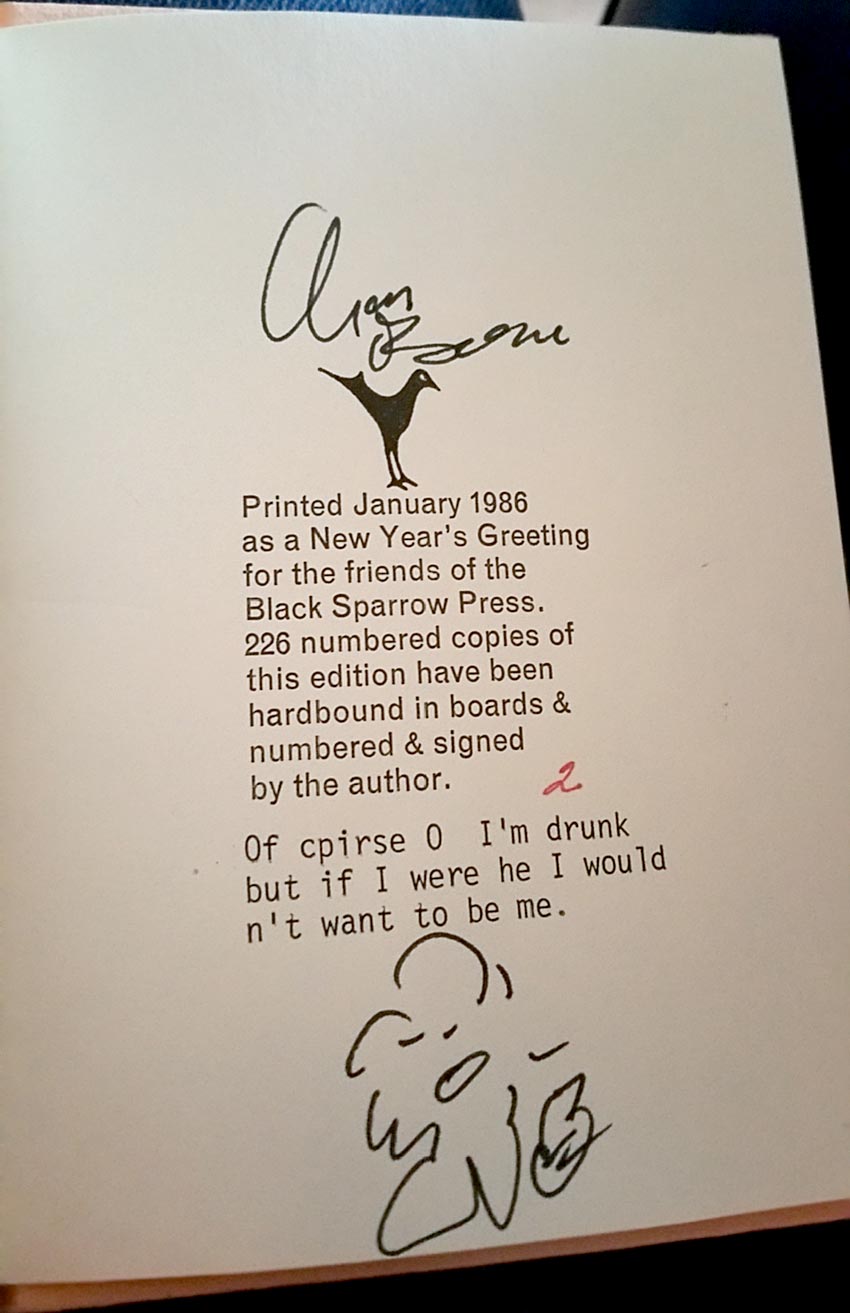 Printed January 1986
as a New Year's Greeting
for the friends of the
Black Sparrow Press.
226 numbered copies of
this edition have been
hardbound in boards &
numbered & signed
by the author.
2
Of cpirse O I'm drunk
but if I were he I would
n't want to be me.